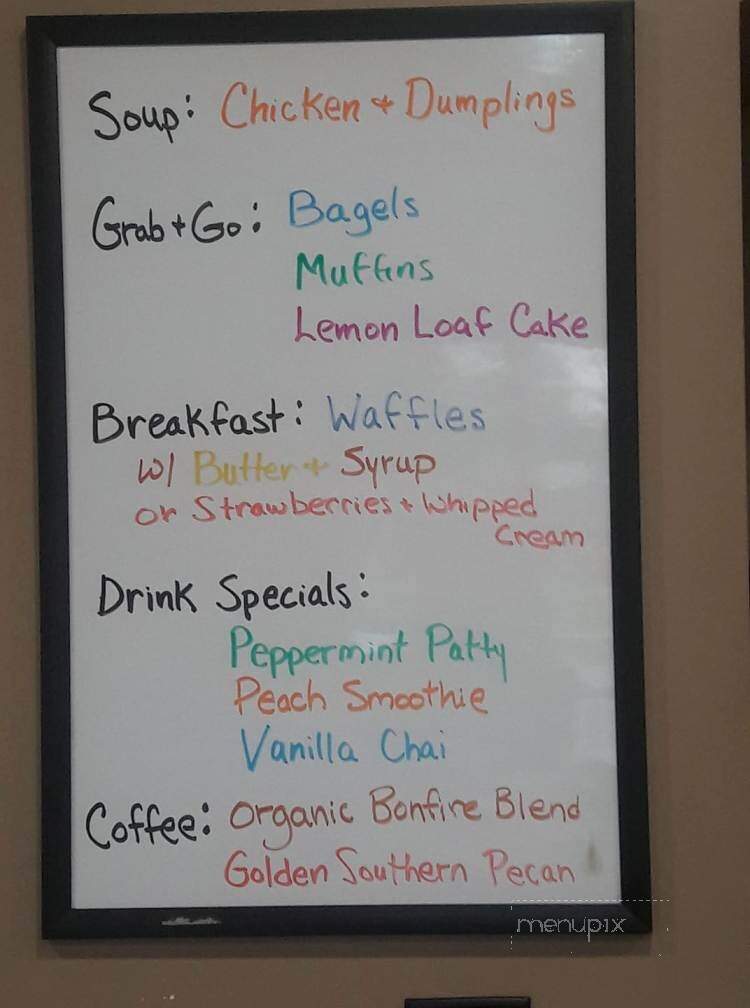 Soup: Chicken + Dumplings
Grab + Go: Bagels
Muffins
Lemon Loaf Cake
Breakfast: Waffles
w/ Butter + Syrup
or Strawberries + Whipped
Cream
Drink Specials:
Peppermint Patty
Peach Smoothie
Vanilla Chai
Coffee: Organic Bonfire Blend
Golden Southern Pecan
menupix